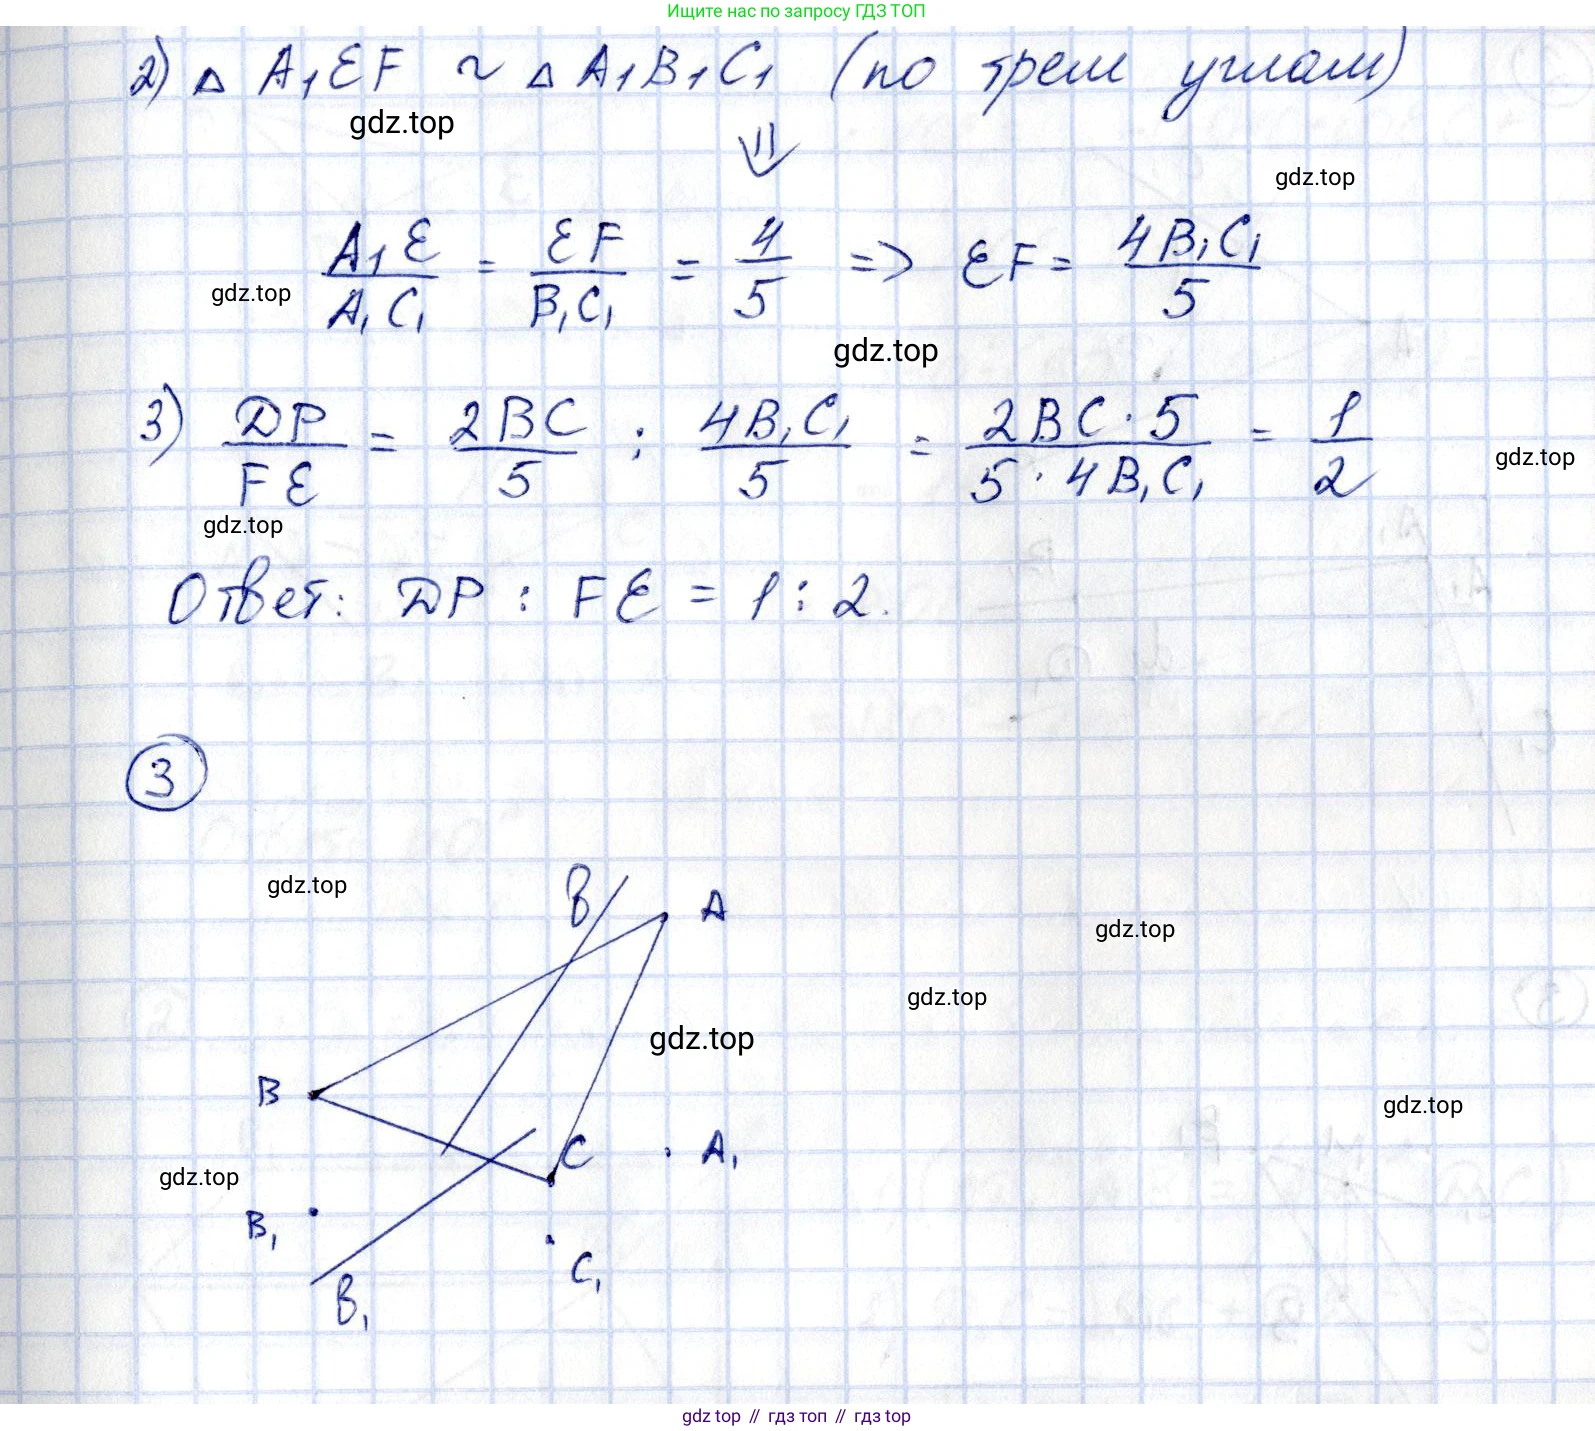 Ищите нас по запросу ГДЗ ТОП
2) △ A₁EF ~ △ A₁B₁C₁ (по трем углам)
gdz.top
⇓
gdz.top
A₁E/A₁C₁ = EF/B₁C₁ = 4/5 => EF = 4B₁C₁/5
gdz.top
gdz.top
3) DP/FE = 2BC/5 : 4B₁C₁/5 = 2BC·5/5·4B₁C₁ = 1/2
gdz.top
gdz.top
Ответ: DP : FE = 1 : 2.
3
gdz.top
β A
gdz.top
gdz.top
gdz.top
B
gdz.top
C A₁
gdz.top
B₁
C₁
β₁
gdz top // гдз топ // gdz top